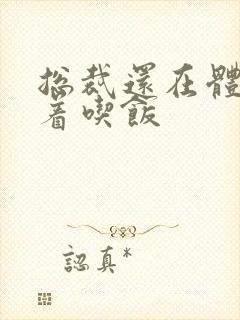 総裁還在體
着喫飯
認真*